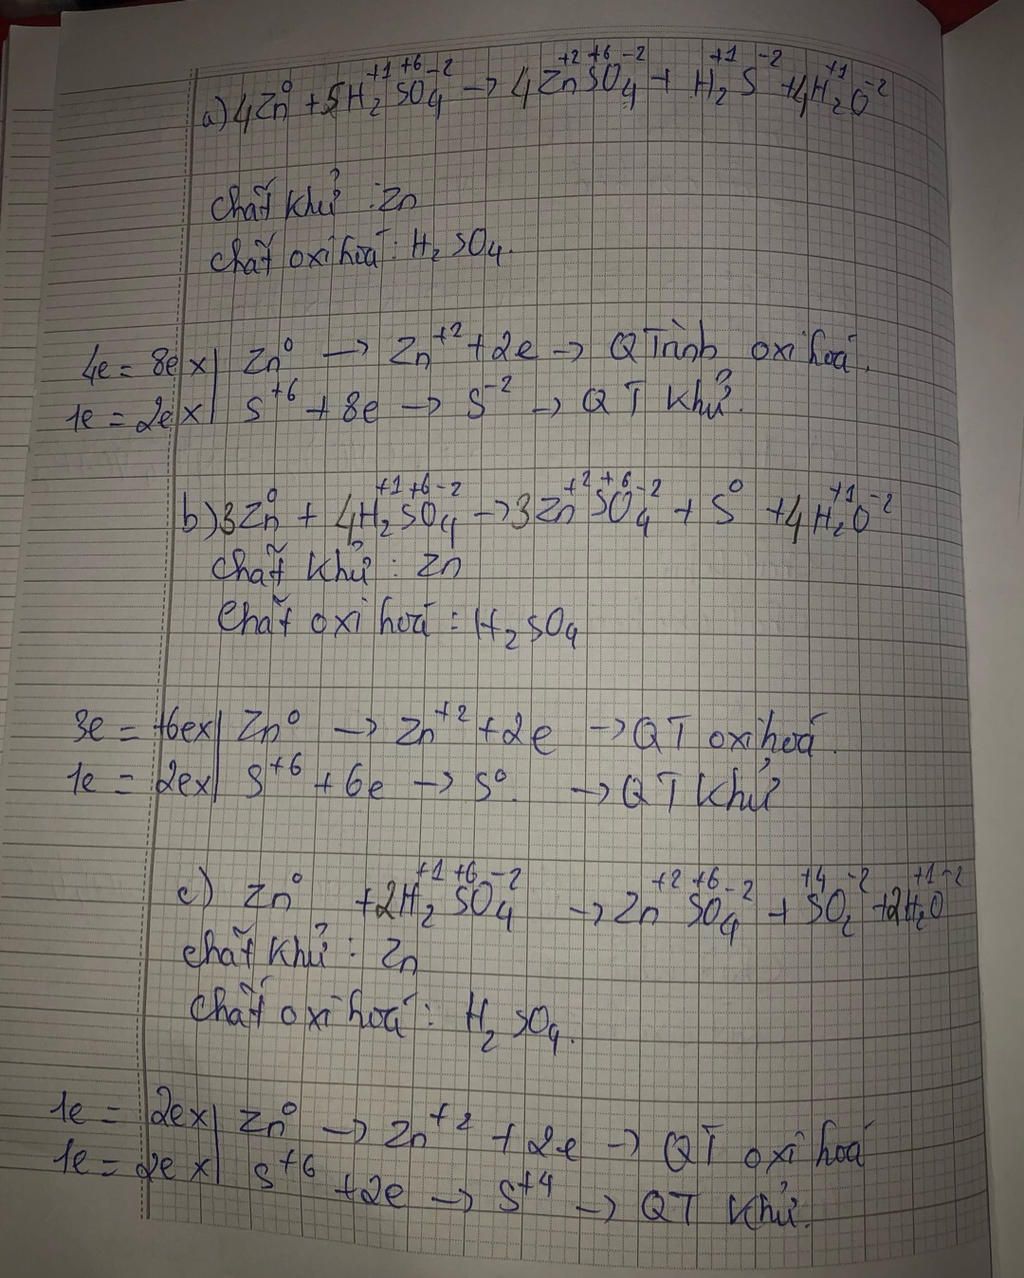 a) 4Zn⁰ + 5H₂⁺¹S⁺⁶O₄⁻² → 4Zn⁺²S⁺⁶O₄⁻² + H₂⁺¹S⁻² + 4H₂⁺¹O⁻²
chất khử : Zn
chất oxi hoá : H₂SO₄.
4e = 8e x | Zn⁰ → Zn⁺² + 2e → QTrình oxi hoá.
1e = 2e x | S⁺⁶ + 8e → S⁻² → QT khử.
b) 3Zn⁰ + 4H₂⁺¹S⁺⁶O₄⁻² → 3Zn⁺²S⁺⁶O₄⁻² + S⁰ + 4H₂⁺¹O⁻²
chất khử : Zn
chất oxi hoá : H₂SO₄
3e = 6e x | Zn⁰ → Zn⁺² + 2e → QT oxi hoá.
1e = 2e x | S⁺⁶ + 6e → S⁰. → QT khử
c) Zn⁰ + 2H₂⁺¹S⁺⁶O₄⁻² → Zn⁺²S⁺⁶O₄⁻² + S⁺⁴O₂⁻² + 2H₂⁺¹O⁻²
chất khử : Zn
chất oxi hoá : H₂SO₄.
1e = 2e x | Zn⁰ → Zn⁺² + 2e → QT oxi hoá
1e = 2e x | S⁺⁶ + 2e → S⁺⁴ → QT khử.